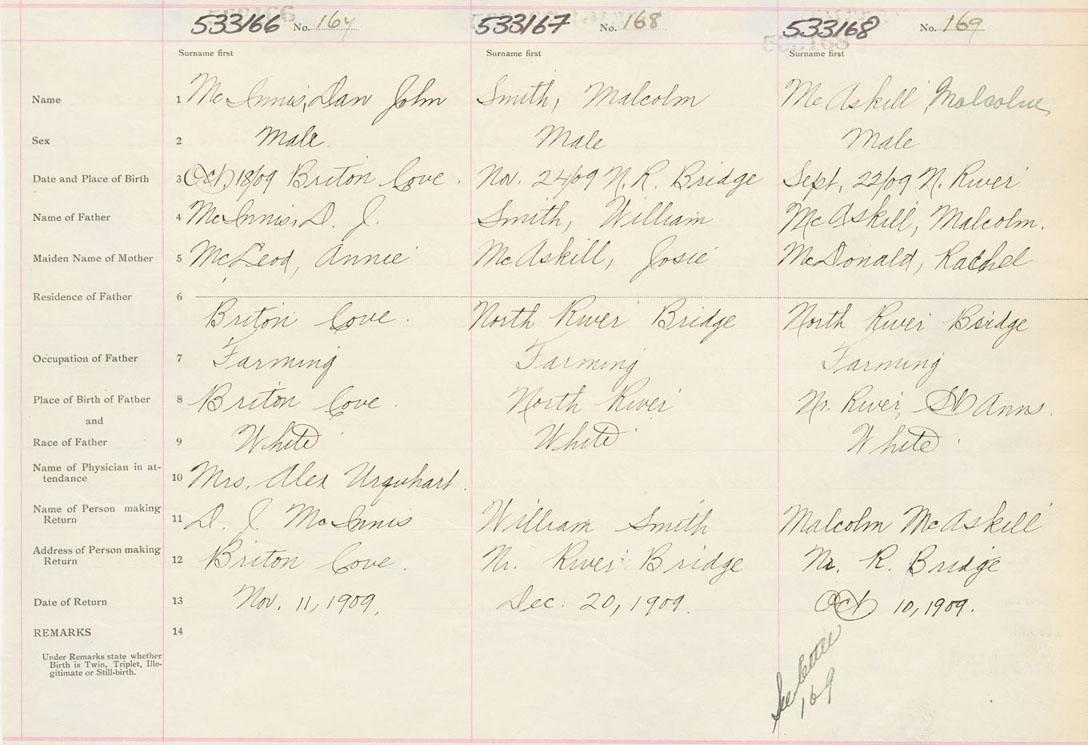 533166 No. 164 533167 No. 168 533168 No. 169
Surname first Surname first Surname first
Name 1 McInnis, Dan John Smith, Malcolm McAskill Malcolm
Sex 2 Male. Male Male
Date and Place of Birth 3 Oct 18/09 Briton Cove. Nov. 24/09 N. R. Bridge Sept, 22/09 N. River
Name of Father 4 McInnis, D. J. Smith, William McAskill, Malcolm.
Maiden Name of Mother 5 McLeod, Annie McAskill, Josie McDonald, Rachel
Residence of Father 6
Briton Cove. North River Bridge North River Bridge
Occupation of Father 7 Farming Farming Farming
Place of Birth of Father 8 Briton Cove. North River No. River, St Anns.
and
Race of Father 9 White White White
Name of Physician in at-
tendance 10 Mrs. Alex Urquhart.
Name of Person making
Return 11 D. J. McInnis William Smith Malcolm McAskill
Address of Person making
Return 12 Briton Cove. Nr. River Bridge Nr. R. Bridge
Date of Return 13 Nov. 11, 1909. Dec. 20, 1909. Oct 10, 1909.
REMARKS 14
Under Remarks state whether
Birth is Twin, Triplet, Ille-
gitimate or Still-birth.
See letter
169